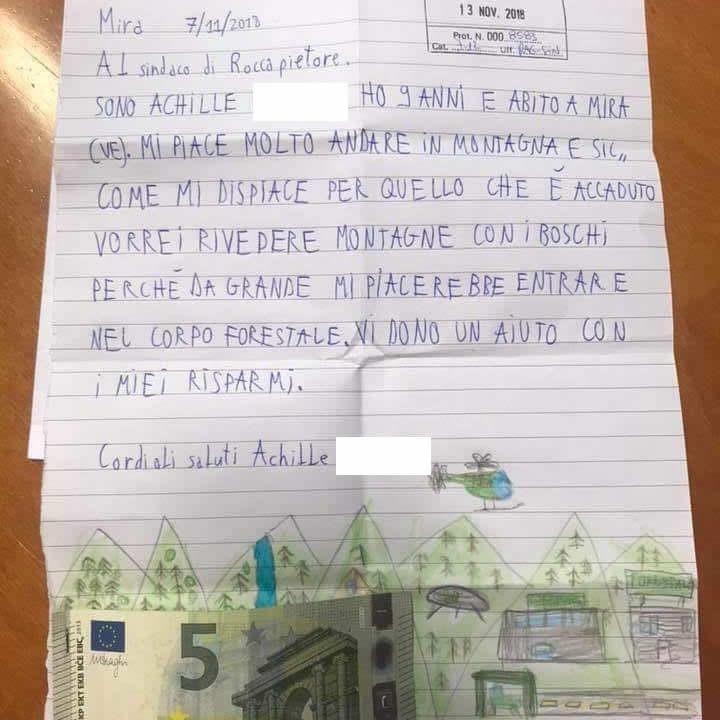 13 NOV. 2018
Prot. N. 000 8583
Cat. Uff. RAG-SIN
Mira 7/11/2018
Al sindaco di Roccapietore.
SONO ACHILLE HO 9 ANNI E ABITO A MIRA
(VE). MI PIACE MOLTO ANDARE IN MONTAGNA E SIC,,
COME MI DISPIACE PER QUELLO CHE È ACCADUTO
VORREI RIVEDERE MONTAGNE CON I BOSCHI
PERCHÉ DA GRANDE MI PIACEREBBE ENTRARE
NEL CORPO FORESTALE. VI DONO UN AIUTO CON
I MIEI RISPARMI.
Cordiali saluti Achille
5